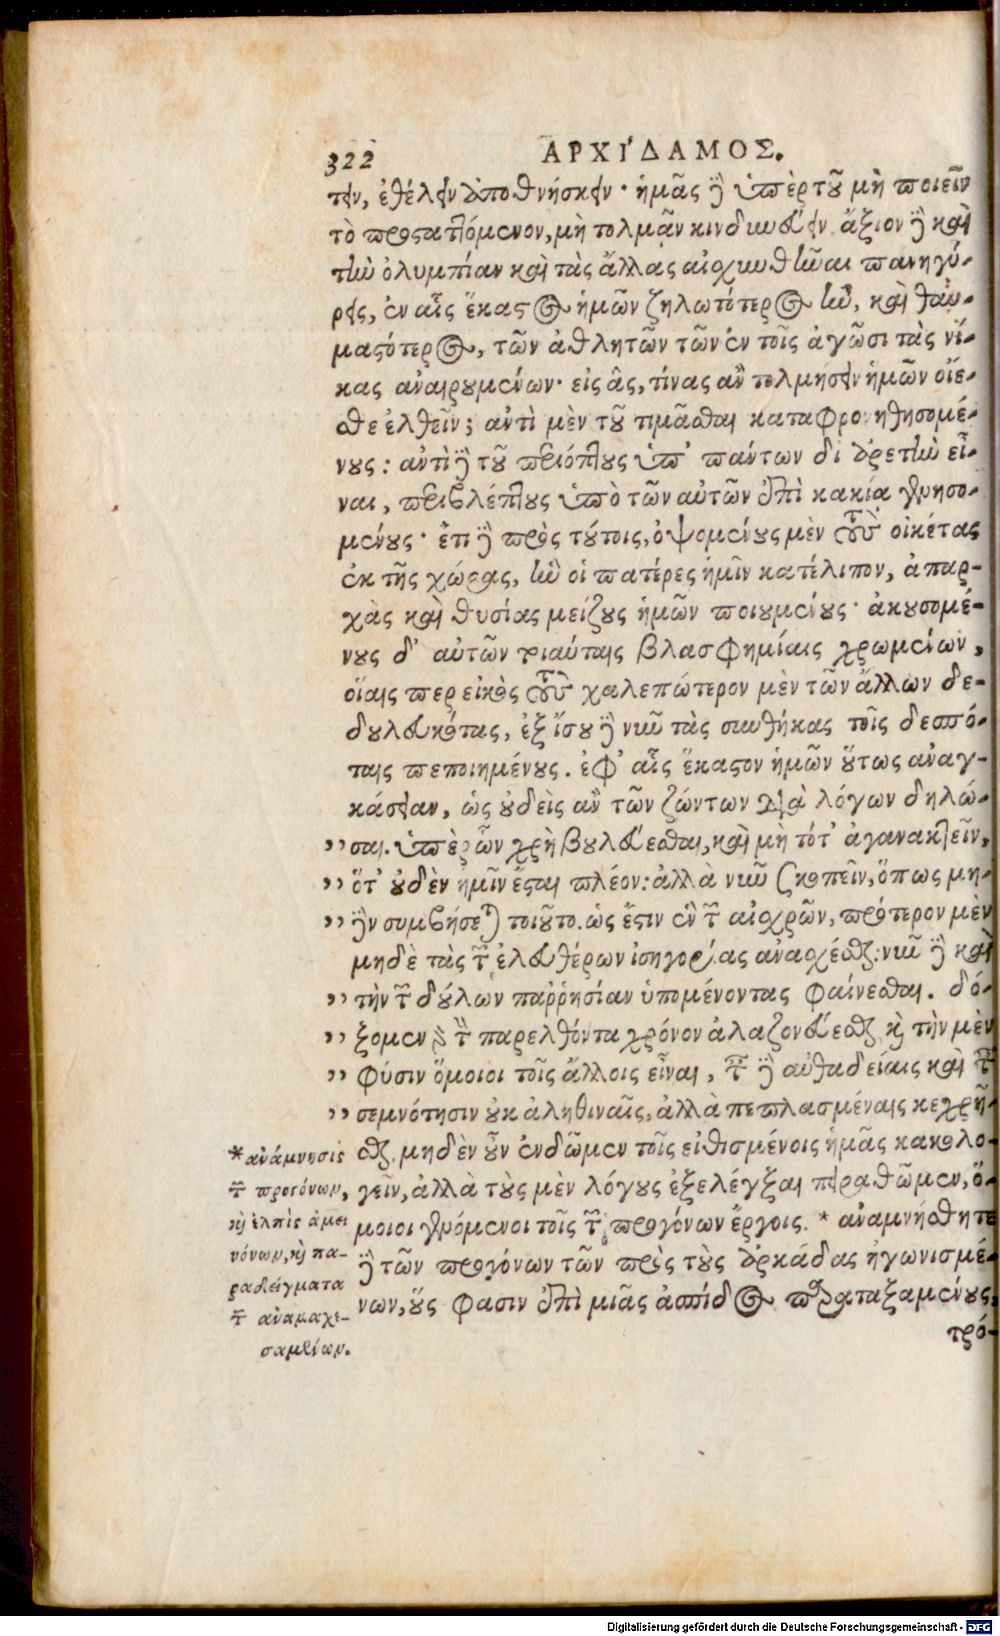 322 ΑΡΧΙ΄ΔΑΜΟΣ.
τειν, ἐθέλειν ἀποθνήσκειν· ἡμᾶς δὲ ὑπὲρ τοῦ μὴ ποιεῖν
τὸ προσταττόμενον, μὴ τολμᾷν κινδυνεύειν. ἄξιον δὲ καὶ
τὴν ὀλυμπίαν καὶ τὰς ἄλλας αἰσχυνθῆναι πανηγύ-
ρεις, ἐν αἷς ἕκαστος ἡμῶν ζηλωτότερος ἦν, καὶ θαυ-
μαστότερος, τῶν ἀθλητῶν τῶν ἐν τοῖς ἀγῶσι τὰς νί-
κας ἀναιρουμένων· εἰς ἃς, τίνας ἂν τολμήσειν ἡμῶν οἴε-
σθε ἐλθεῖν; ἀντὶ μὲν τοῦ τιμᾶσθαι καταφρονηθησομέ-
νους: ἀντὶ δὲ τοῦ περιόπτους ὑπ' πάντων δι ἀρετὴν εἶ-
ναι, περιβλέπτους ὑπὸ τῶν αὐτῶν ἐπὶ κακίᾳ γενησο-
μένους· ἔτι δὲ πρὸς τούτοις, ὀψομένους μὲν τοὺς οἰκέτας
ἐκ τῆς χώρας, ἣν οἱ πατέρες ἡμῖν κατέλιπον, ἀπαρ-
χὰς καὶ θυσίας μείζους ἡμῶν ποιουμένους· ἀκουσομέ-
νους δ' αὐτῶν τοιαύταις βλασφημίαις χρωμένων,
οἵαις περ εἰκὸς τοὺς χαλεπώτερον μὲν τῶν ἄλλων δε-
δουλευκότας, ἐξ ἴσου δὲ νῦν τὰς συνθήκας τοῖς δεσπό-
ταις πεποιημένους. ἐφ' αἷς ἕκαστον ἡμῶν οὕτως ἀναγ-
κάσειαν, ὡς οὐδεὶς ἂν τῶν ζώντων διὰ λόγων δηλώ-
,, σαι. ὑπὲρ ὧν χρὴ βουλεύεσθαι, καὶ μὴ τότ' ἀγανακτεῖν,
,, ὅτ' οὐδὲν ἡμῖν ἔσται πλέον: ἀλλὰ νῦν σκοπεῖν, ὅπως μη-
,, δὲν συμβήσεται τοιοῦτο. ὡς ἔστιν ἓν τῶν αἰσχρῶν, πρότερον μὲν
μηδὲ τὰς τῶν ἐλευθέρων ἰσηγορίας ἀνασχέσθαι: νῦν δὲ καὶ
,, τὴν τῶν δούλων παῤῥησίαν ὑπομένοντας φαίνεσθαι. δό-
,, ξομεν γὰρ τὸν παρελθόντα χρόνον ἀλαζονεύεσθαι καὶ τὴν μὲν
,, φύσιν ὅμοιοι τοῖς ἄλλοις εἶναι, ταῖς δὲ αὐθαδείαις καὶ ταῖς
,, σεμνότησιν οὐκ ἀληθιναῖς, ἀλλὰ πεπλασμέναις κεχρῆ-
σθαι. μηδὲν οὖν ἐνδῶμεν τοῖς εἰθισμένοις ἡμᾶς κακολο-
γεῖν, ἀλλὰ τοὺς μὲν λόγους ἐξελέγξαι πειραθῶμεν, ὅ-
μοιοι γενόμενοι τοῖς τῶν προγόνων ἔργοις. * ἀναμνήσθητε
δὲ τῶν προγόνων τῶν πρὸς τοὺς ἀρκάδας ἠγωνισμέ-
νων, οὕς φασιν ἐπὶ μιᾶς ἀσπίδος παραταξαμένους,
τρό-
*ἀνάμνησις
τῶν προγόνων,
καὶ ἐλπὶς ἀμει
νόνων, καὶ πα-
ραδείγματα
τῶν ἀναμαχε-
σαμένων.
Digitalisierung gefördert durch die Deutsche Forschungsgemeinschaft - DFG